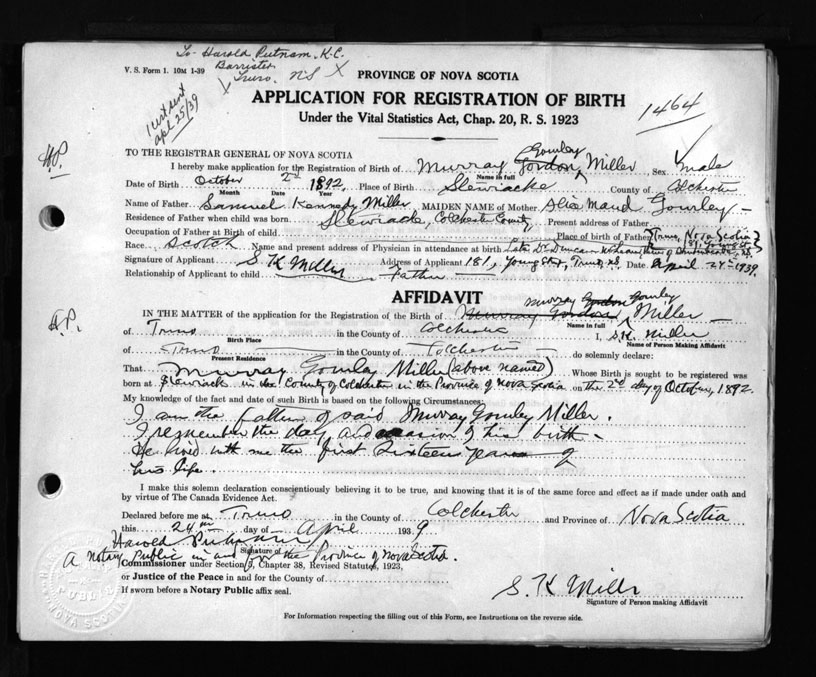 To Harold Putnam, K.C.
Barrister
Truro, N.S. X
V. S. Form 1. 10M 1-39
PROVINCE OF NOVA SCOTIA
1 cert sent
apl 25/39
APPLICATION FOR REGISTRATION OF BIRTH
1464
Under the Vital Statistics Act, Chap. 20, R. S. 1923
H.P.
TO THE REGISTRAR GENERAL OF NOVA SCOTIA
Gourley
I hereby make application for the Registration of Birth of Murray Gordon Miller Sex male
Name in full
Date of Birth October 2nd 1892, Place of Birth Stewiacke County of Colchester
Month Date Year
Name of Father Samuel Kennedy Miller MAIDEN NAME of Mother Alice Maud Gourley
Residence of Father when child was born Stewiacke, Colchester County Present address of Father
Occupation of Father at Birth of child Place of birth of Father Truro, Nova Scotia
181, Young St
Race Scotch Name and present address of Physician in attendance at birth Late Dr. Duncan
Signature of Applicant S K Miller Address of Applicant 181, Young St, Truro, N.S. Date April 24th 1939
Relationship of Applicant to child Father
AFFIDAVIT
H.P.
Murray Gordon Gourley
IN THE MATTER of the application for the Registration of the Birth of Murray Gordon Miller
Name in full
of Truro in the County of Colchester I, S.K. Miller
Birth Place Name of Person Making Affidavit
of Truro in the County of Colchester do solemnly declare:
Present Residence
That Murray Gourley Miller (above named) Whose Birth is sought to be registered was
born at Stewiack in the County of Colchester in the Province of Nova Scotia on the 2nd day of October, 1892.
My knowledge of the fact and date of such Birth is based on the following Circumstances:
I am the father of said Murray Gourley Miller.
I remember the day and occasion of his birth.
He lived with me the first sixteen years of
his life.
I make this solemn declaration conscientiously believing it to be true, and knowing that it is of the same force and effect as if made under oath and
by virtue of The Canada Evidence Act.
Declared before me at Truro in the County of Colchester and Province of Nova Scotia
this 24th day of April 1939
Harold Putnam
Signature of
A Notary Public in and for the Province of Nova Scotia.
Commissioner under Section 5, Chapter 38, Revised Statutes, 1923,
or Justice of the Peace in and for the County of
S. K Miller
If sworn before a Notary Public affix seal.
Signature of Person making Affidavit
PUBLIC
NOVA SCOTIA
For Information respecting the filling out of this Form, see Instructions on the reverse side.